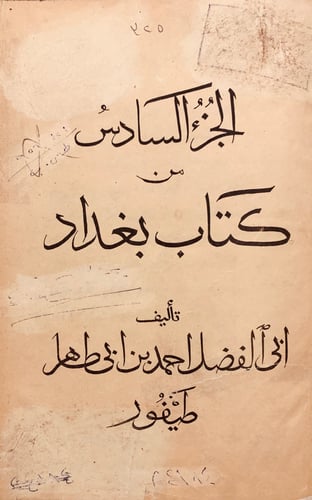 ٣٢٥
الجزُء السادسُ
من
كتاب بغداد
تأليف
ابى الفضل احمد بن ابى طاهر
طَيْفُور